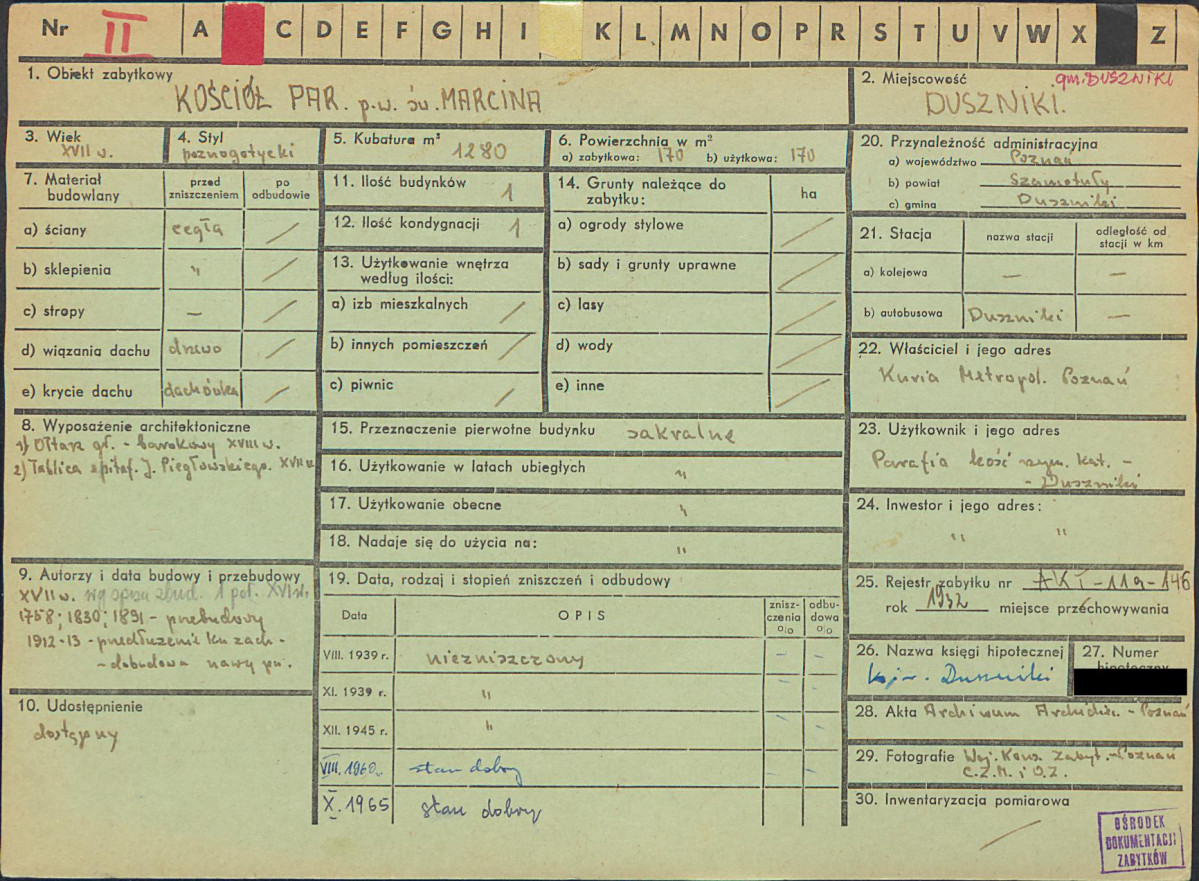 Nr II A C D E F G H I K L M N O P R S T U V W X Z
1. Obiekt zabytkowy
KOŚCIÓŁ PAR. p.w. św. MARCINA
2. Miejscowość
gm. DUSZNIKI
DUSZNIKI.
3. Wiek
XVII w.
4. Styl
poznogotycki
5. Kubatura m³
1280
6. Powierzchnia w m²
a) zabytkowa: 170 b) użytkowa: 170
7. Materiał budowlany
przed zniszczeniem
po odbudowie
a) ściany cegła /
b) sklepienia " /
c) stropy — /
d) wiązania dachu drzewo /
e) krycie dachu dachówka /
11. Ilość budynków 1
12. Ilość kondygnacji 1
13. Użytkowanie wnętrza
według ilości:
a) izb mieszkalnych /
b) innych pomieszczeń /
c) piwnic /
14. Grunty należące do
zabytku:
ha
a) ogrody stylowe /
b) sady i grunty uprawne /
c) lasy /
d) wody /
e) inne /
20. Przynależność administracyjna
a) województwo Poznań
b) powiat Szamotuły
c) gmina Duszniki
21. Stacja
nazwa stacji
odległość od
stacji w km
a) kolejowa — —
b) autobusowa Duszniki —
22. Właściciel i jego adres
Kuria Metropol. Poznań
8. Wyposażenie architektoniczne
1) Ołtarz gł. - barokowy XVIII w.
2) Tablica epitaf. J. Piegłowskiego. XVII w.
15. Przeznaczenie pierwotne budynku sakralne
16. Użytkowanie w latach ubiegłych "
17. Użytkowanie obecne "
18. Nadaje się do użycia na: "
23. Użytkownik i jego adres
Parafia kość rzym. kat. -
- Duszniki
24. Inwestor i jego adres:
" "
9. Autorzy i data budowy i przebudowy
XVII w. wg spisu zbud. 1 poł. XVI w.
1758; 1830; 1891 - przebudowy
1912-13 - przedłużenie ku zach. -
- dobudowa nawy pn.
10. Udostępnienie
dostępny
19. Data, rodzaj i stopień zniszczeń i odbudowy
Data
OPIS
znisz-
czenia
%
odbu-
dowa
%
VIII. 1939 r. niezniszczony — —
XI. 1939 r. " — —
XII. 1945 r. " — —
VIII. 1960 r. stan dobry — —
X. 1965 stan dobry
25. Rejestr zabytku nr AKI-11a-146
rok 1932 miejsce przechowywania
26. Nazwa księgi hipotecznej
Duszniki
27. Numer
hipoteczny
28. Akta Archiwum Archidiec. - Poznań
29. Fotografie Woj. Kons. Zabyt. - Poznań
C.Z.M. i O.Z.
30. Inwentaryzacja pomiarowa
/
OŚRODEK
DOKUMENTACJI
ZABYTKÓW